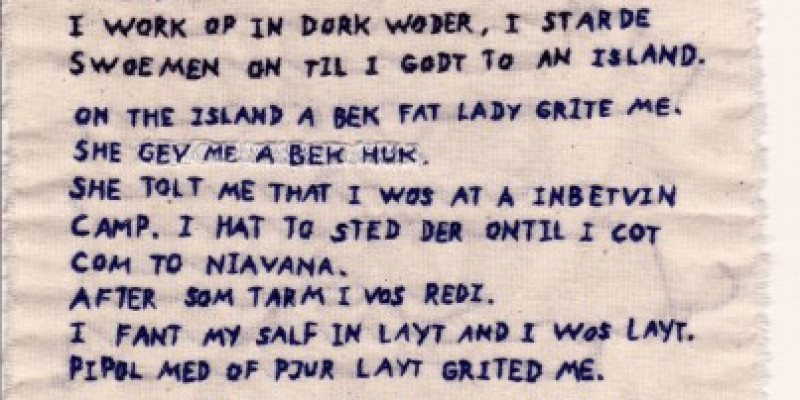 I WORK OP IN DORK WODER, I STARDE
SWOEMEN ON TIL I GODT TO AN ISLAND.
ON THE ISLAND A BEK FAT LADY GRITE ME.
SHE GEV ME A BEK HUK.
SHE TOLT ME THAT I WOS AT A INBETVIN
CAMP. I HAT TO STED DER ONTIL I COT
COM TO NIAVANA.
AFTER SOM TARM I VOS REDI.
I FANT MY SALF IN LAYT AND I WOS LAYT.
PIPOL MED OF PJUR LAYT GRITED ME.